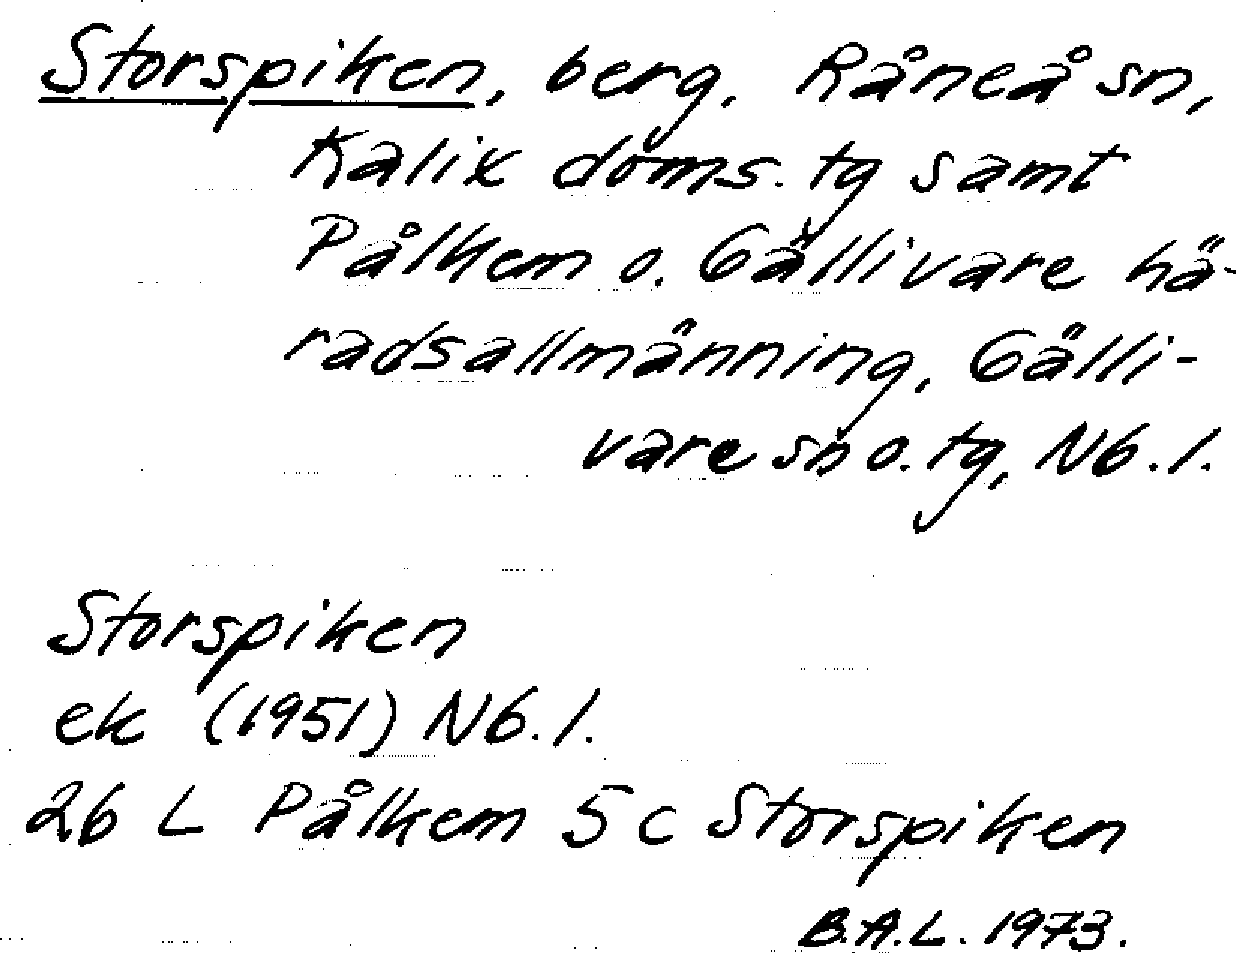 Storspiken, berg, Råneå sn,
Kalix doms. tg samt
Pålkem o. Gällivare hä-
radsallmänning, Gälli-
vare sn o. tg, Nb. l.
Storspiken
ek (1951) Nb. l.
26 L Pålkem 5 c Storspiken
B.A.L. 1973.